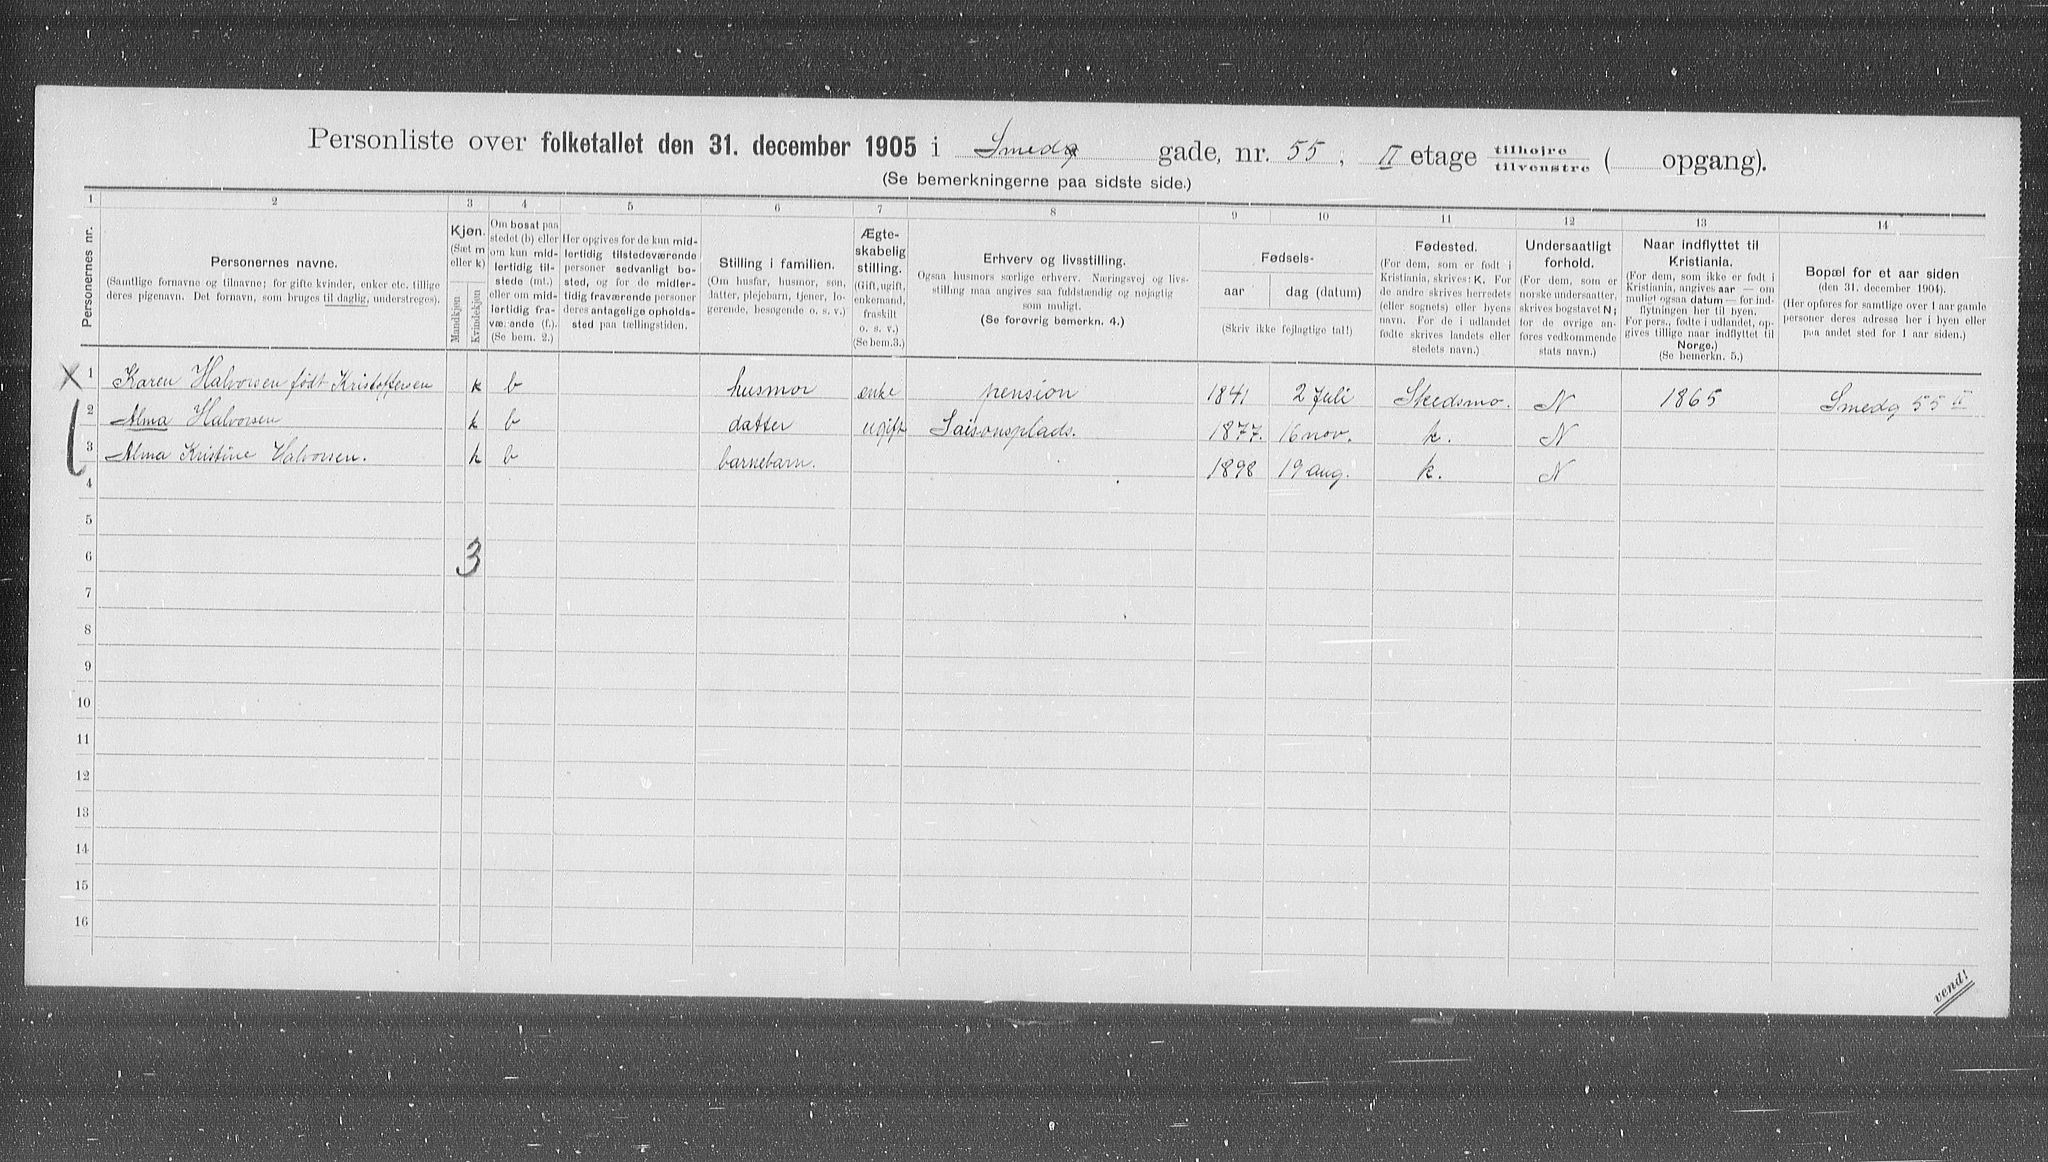 Personliste over folketallet den 31. december 1905 i Smedg gade, nr. 55, II etage tilhøjre tilvenstre ( opgang).
(Se bemerkningerne paa sidste side.)
1 2 3 4 5 6 7 8 9 10 11 12 13 14
Personernes nr.
Personernes navne.
(Samtlige fornavne og tilnavne; for gifte kvinder, enker etc. tillige
deres pigenavn. Det fornavn, som bruges til daglig, understreges).
Kjøn.
(Sæt m
eller k)
Mandkjøn
Kvindekjøn
Om bosat paa
stedet (b) eller
om kun mid-
lertidig til-
stede (mt.)
eller om mid-
lertidig fra-
værende (f.).
(Se bem. 2.)
Her opgives for de kun mid-
lertidig tilstedeværende
personer sedvanligt bo-
sted, og for de midler-
tidig fraværende personer
deres antagelige opholds-
sted paa tællingstiden.
Stilling i familien.
(Om husfar, husmor, søn,
datter, plejebarn, tjener, lo-
gerende, besøgende o. s. v.)
Ægte-
skabelig
stilling.
(Gift, ugift,
enkemand,
fraskilt
o. s. v.)
(Se bem.3.)
Erhverv og livsstilling.
Ogsaa husmors særlige erhverv. Næringsvej og livs-
stilling maa angives saa fuldstændig og nøjagtig
som muligt.
(Se forøvrig bemerkn. 4.)
Fødsels-
aar
dag (datum)
(Skriv ikke fejlagtige tal!)
Fødested.
(For dem, som er født i
Kristiania, skrives: K. For
de andre skrives herredets
(eller sognets) eller byens
navn. For de i udlandet
fødte skrives landets eller
stedets navn.)
Undersaatligt
forhold.
(For dem, som er
norske undersaatter,
skrives bogstavet N;
for de øvrige an-
føres vedkommende
stats navn.)
Naar indflyttet til
Kristiania.
(For dem, som ikke er født i
Kristiania, angives aar — om
muligt ogsaa datum — for ind-
flytningen her til byen.
For pers., fødte i udlandet, op-
gives tillige naar indflyttet til
Norge.)
(Se bemerkn. 5.)
Bopæl for et aar siden
(den 31. december 1904).
(Her opføres for samtlige over 1 aar gamle
personer deres adresse her i byen eller
paa andet sted for 1 aar siden.)
1 Karen Halvorsen født Kristoffersen k b husmor enke pension 1841 2 Juli Skedsmo. N 1865 Smedg 55 II
2 Alma Halvorsen k b datter ugift Saisonsplads. 1877. 16 nov. k. N
3 Alma Kristine Halvorsen. k b barnebarn. 1898 19 aug. k. N
4
5
6 3
7
8
9
10
11
12
13
14
15
16
vend!